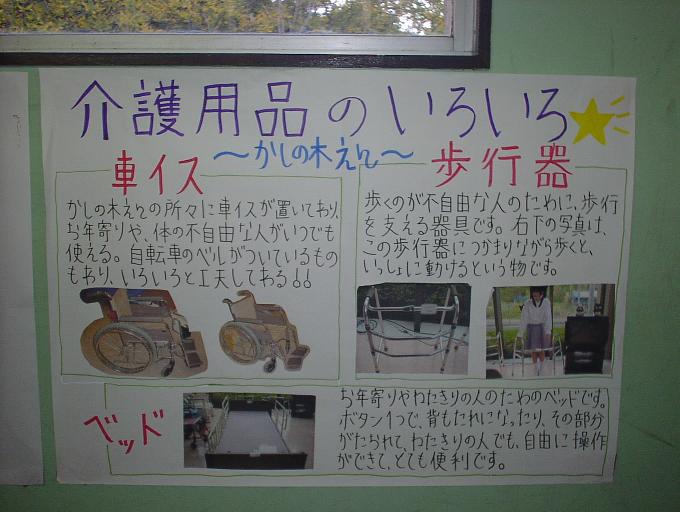 介護用品のいろいろ
〜かしの木えん〜
車イス
かしの木えんの所々に車イスが置いており、
お年寄りや、体の不自由な人がいつでも
使える。自転車のベルがついているもの
もあり、いろいろと工夫してある!!
歩行器
歩くのが不自由な人のために、歩行
を支える器具です。右下の写真は、
この歩行器につかまりながら歩くと、
いっしょに動けるという物です。
ベッド
お年寄りやねたきりの人のためのベッドです。
ボタン1つで、背もたれになったり、その部分
がたおれて、ねたきりの人でも、自由に操作
ができて、とても便利です。